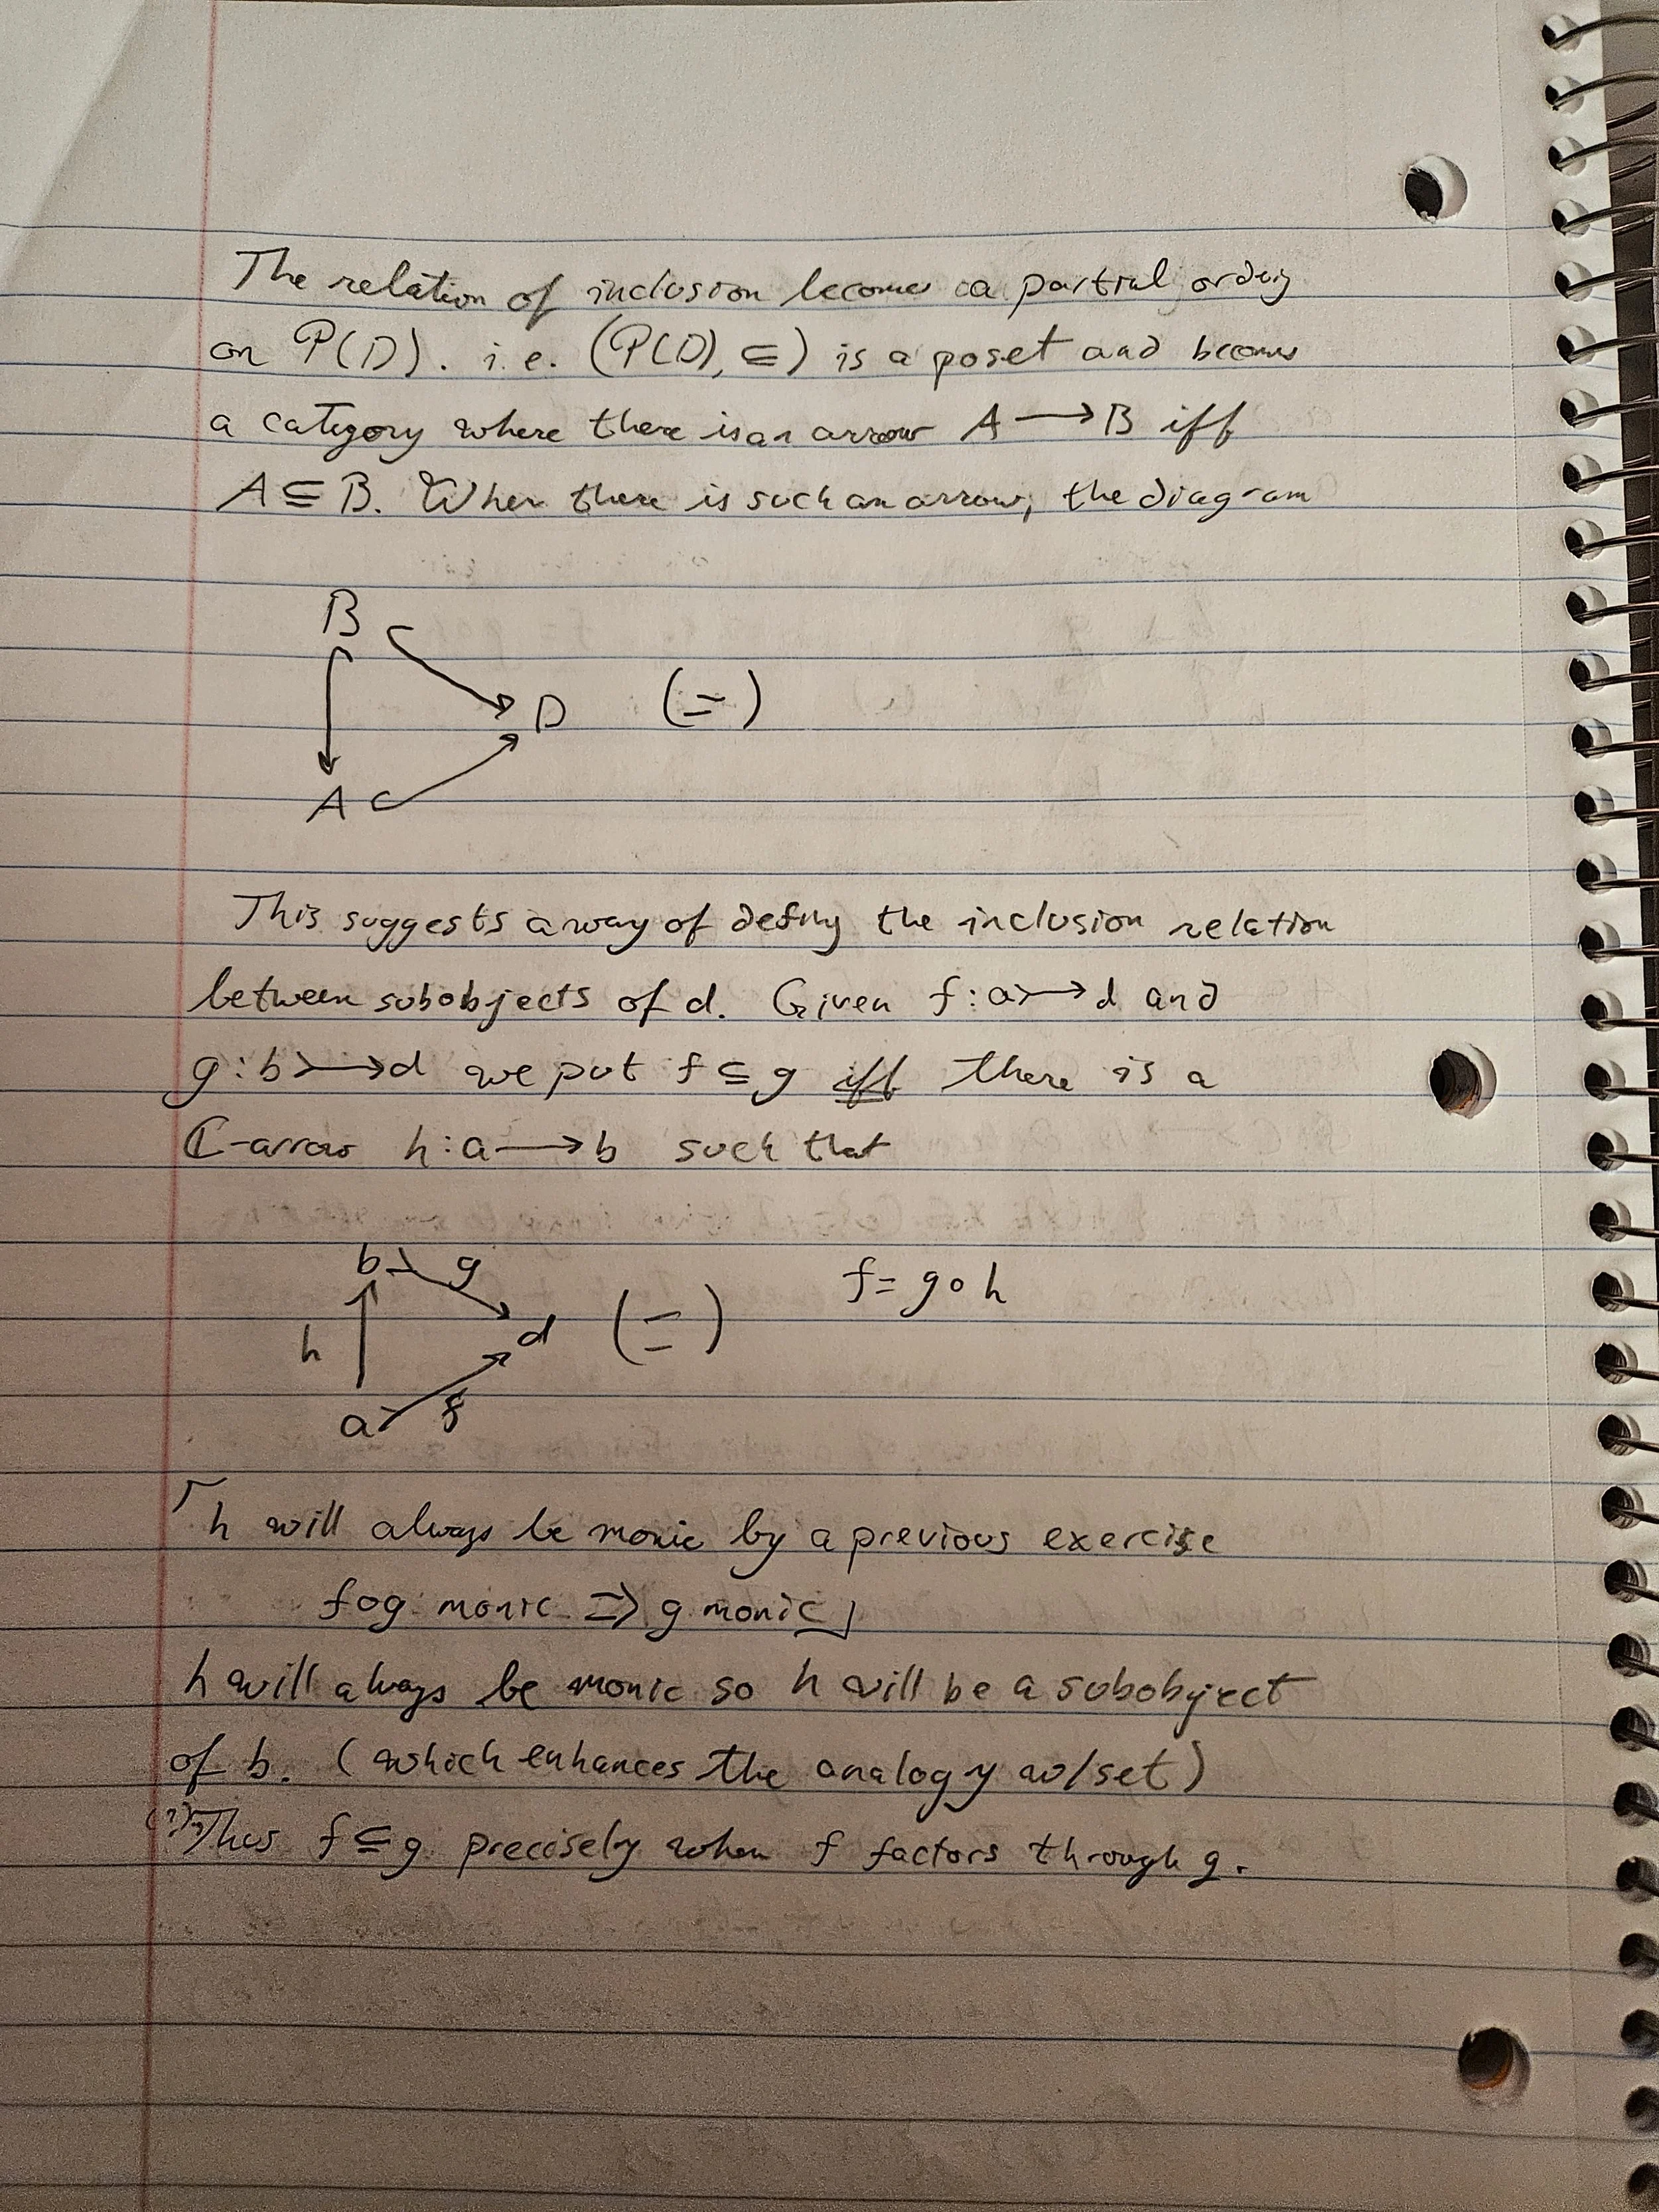 The relation of inclusion becomes a partial ordrig
on P(D). i.e. (P(D), ⊆) is a poset and becoms
a category where there is an arrow A ⟶ B iff
A ⊆ B. When there is such an arrow, the diagram
B
D (=)
A
This suggests a way of defing the inclusion relation
between subobjects of d. Given f : a ↣ d and
g : b ↣ d we put f ⊆ g iff there is a
ℂ-arrow h : a ⟶ b such that
b g f = g ∘ h
h d (=)
a f
⌜h will always be monic by a previous exercise
f∘g monic ⇒ g monic⌟
h will always be monic so h will be a subobject
of b. (which enhances the analogy w/set)
(?) Thus f ⊆ g precisely when f factors through g.